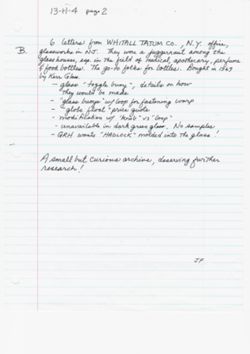 13-H-4 page 2
B. 6 letters from WHITALL TATUM CO., N.Y. office,
glassworks in N.J. They were a juggernaut among the
glasshouses, esp. in the field of medical, apothecary, perfume
& food bottles. The go-to folks for bottles. Bought in 1969
by Kerr Glass.
- glass "toggle buoy", details on how
they would be made
- "glass bump" w/ loop for fastening
- "globe float" price quote
- modification w/ "knob" vs "loop"
- unavailable in dark green glass. No samples
- GRH wants "HADLOCK" molded into the glass!
A small but curious archive, deserving further
research!
JF